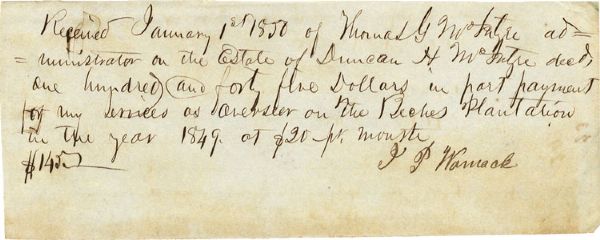 Received January 1st 1850 of Thomas G McIntyre ad=
=ministrator on the Estate of Duncan H McIntyre decd,
one hundred and forty five Dollars in part payment
for my services as overseer on the Plantation
in the year 1849. at $20 pr. month
$145
J P Womack